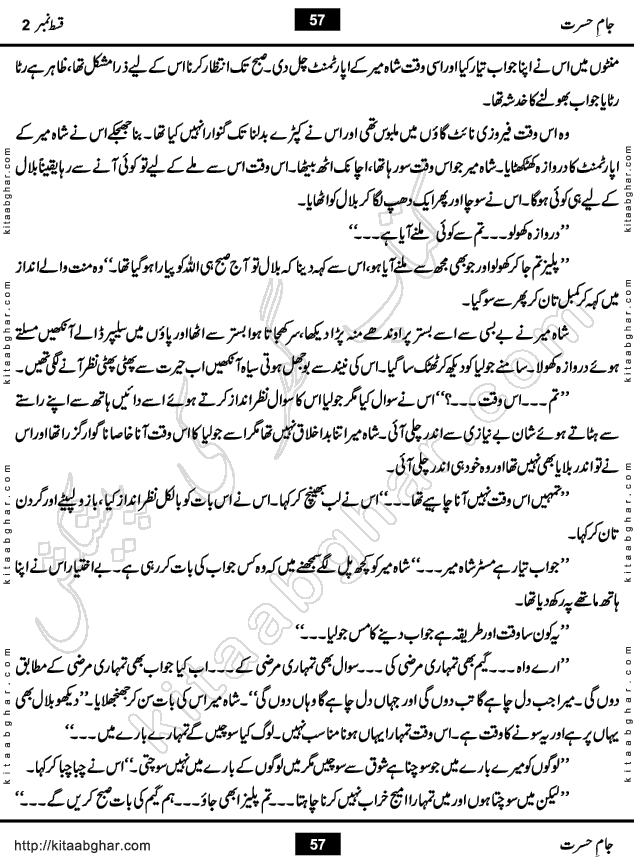 جامِ حسرت 57 قسط نمبر 2
منٹوں میں اس نے اپنا جواب تیار کیا اور اسی وقت شاہ میر کے اپارٹمنٹ چل دی۔ صبح تک انتظار کرنا اس کے لیے ذرا مشکل تھا، ظاہر ہے رٹا
رٹایا جواب بھولنے کا خدشہ تھا۔
وہ اس وقت فیروزی نائٹ گاؤں میں ملبوس تھی اور اس نے کپڑے بدلنا تک گنوارا نہیں کیا تھا۔ بنا جھجکے اس نے شاہ میر کے
اپارٹمنٹ کا دروازہ کھٹکھٹایا۔ شاہ میر جو اس وقت سو رہا تھا، اچانک اٹھ بیٹھا۔ اس وقت اس سے ملنے کے لیے تو کوئی آنے سے رہا یقیناً بلال
کے لیے ہی کوئی ہوگا۔ اس نے سوچا اور پھر ایک دھپ لگا کر بلال کو اٹھایا۔
’’دروازہ کھولو۔۔۔تم سے کوئی ملنے آیا ہے۔۔۔‘‘
’’پلیز تم جا کر کھولو اور جو بھی مجھ سے ملنے آیا ہو، اس سے کہہ دینا کہ بلال تو آج صبح ہی اللہ کو پیارا ہو گیا تھا۔‘‘ وہ منت والے انداز
میں کہہ کر کمبل تان کر پھر سے سو گیا۔
شاہ میر نے بے بسی سے اسے بستر پر اوندھے منہ پڑا دیکھا، سر کھجاتا ہوا بستر سے اٹھا اور پاؤں میں سلیپر ڈالے آنکھیں مسلتے
ہوئے دروازہ کھولا۔ سامنے جولیا کو دیکھ کر ٹھٹک سا گیا۔ اس کی نیند سے بوجھل ہوتی سیاہ آنکھیں اب حیرت سے پھٹی پھٹی نظر آنے لگی تھیں۔
’’تم۔۔۔اس وقت۔۔۔؟‘‘ اس نے سوال کیا مگر جولیا اس کا سوال نظر انداز کرتے ہوئے اسے دائیں ہاتھ سے اپنے راستے
سے ہٹاتے ہوئے شانِ بے نیازی سے اندر چلی آئی۔ شاہ میر اتنا بداخلاق نہیں تھا مگر اسے جولیا کا اس وقت آنا خاصا ناگوار گزرا تھا اور اس
نے تو اندر بلایا بھی نہیں تھا اور وہ خود ہی اندر چلی آئی۔
’’تمہیں اس وقت نہیں آنا چاہیے تھا۔۔۔‘‘ اس نے لب بھینچ کر کہا۔ اس نے اس بات کو بالکل نظر انداز کیا، بازو لپیٹے اور گردن
تان کر کہا۔
’’جواب تیار ہے مسٹر شاہ میر۔۔۔‘‘ شاہ میر کو کچھ پل لگے سمجھنے میں کہ وہ کس جواب کی بات کر رہی ہے۔ بے اختیار اس نے اپنا
ہاتھ ماتھے پہ رکھ دیا تھا۔
’’یہ کون سا وقت اور طریقہ ہے جواب دینے کا مس جولیا۔۔۔‘‘
’’ارے واہ۔۔۔گیم بھی تمہاری مرضی کی۔۔۔سوال بھی تمہاری مرضی کے۔۔۔اب کیا جواب بھی تمہاری مرضی کے مطابق
دوں گی۔ میرا جب دل چاہے گا تب دوں گی اور جہاں دل چاہے گا وہاں دوں گی‘‘۔ شاہ میر اس کی بات سن کر جھنجھلایا۔’’دیکھو بلال بھی
یہاں پر ہے اور یہ سونے کا وقت ہے۔ اس وقت تمہارا یہاں ہونا مناسب نہیں۔ لوگ کیا سوچیں گے تمہارے بارے میں۔۔۔‘‘
’’لوگوں کو میرے بارے میں جو سوچنا ہے شوق سے سوچیں مگر میں لوگوں کے بارے میں نہیں سوچتی۔‘‘ اس نے چبا چبا کر کہا۔
’’لیکن میں سوچتا ہوں اور میں تمہارا امیج خراب نہیں کرنا چاہتا۔۔۔تم پلیز ابھی جاؤ۔۔۔ہم گیم کی بات صبح کریں گے۔۔۔‘‘
جامِ حسرت 57 http://kitaabghar.com
kitaabghar.com
kitaabghar.com
kitaabghar.com
kitaabghar.com
kitaabghar.com
kitaabghar.com
kitaabghar.com
kitaabghar.com
کتاب گھر کی پیشکش
kitaabghar.com